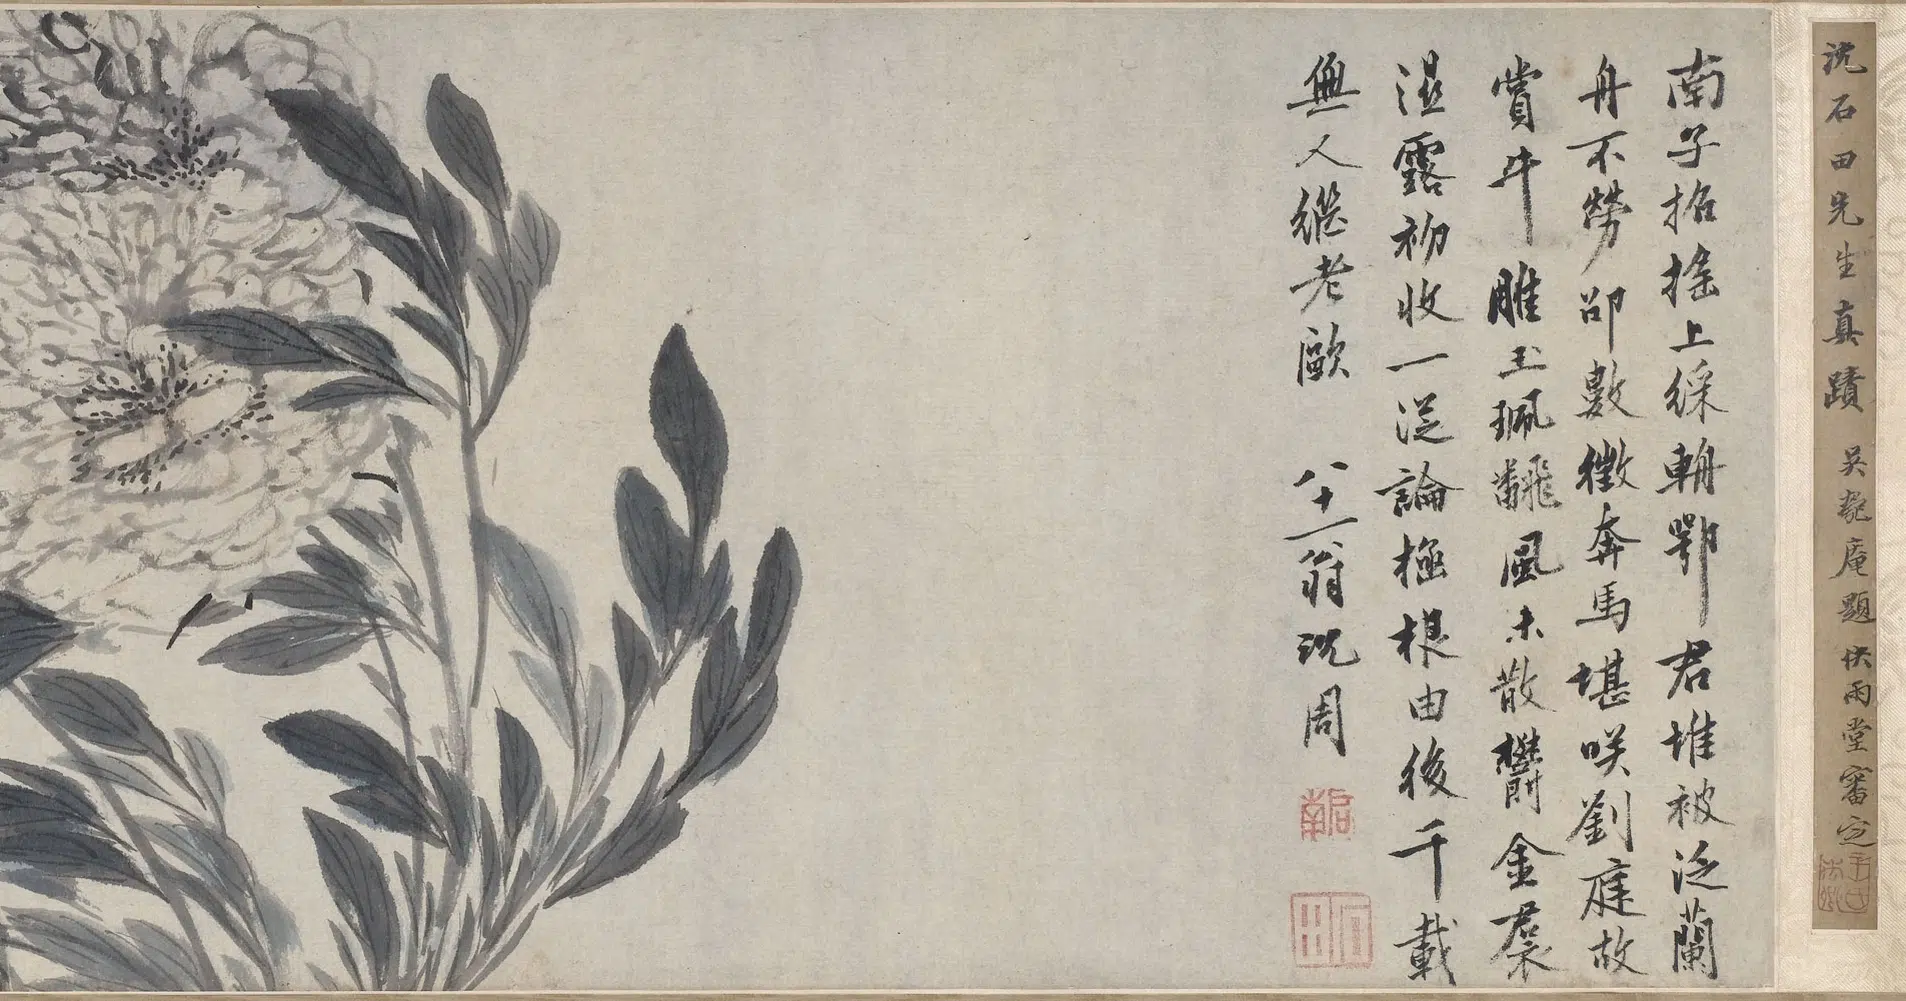 沈石田先生真蹟 吳匏庵題 快雨堂審定
南子招搖上綵輈鄂君堆被泛蘭
舟不勞卲數徵奔馬堪咲劉庭故
賞牛雕玉珮飜風未散鬱金裠
湿露初收一從論極根由後千載
無人繼老歐 八十一翁沈周
啟南
石田